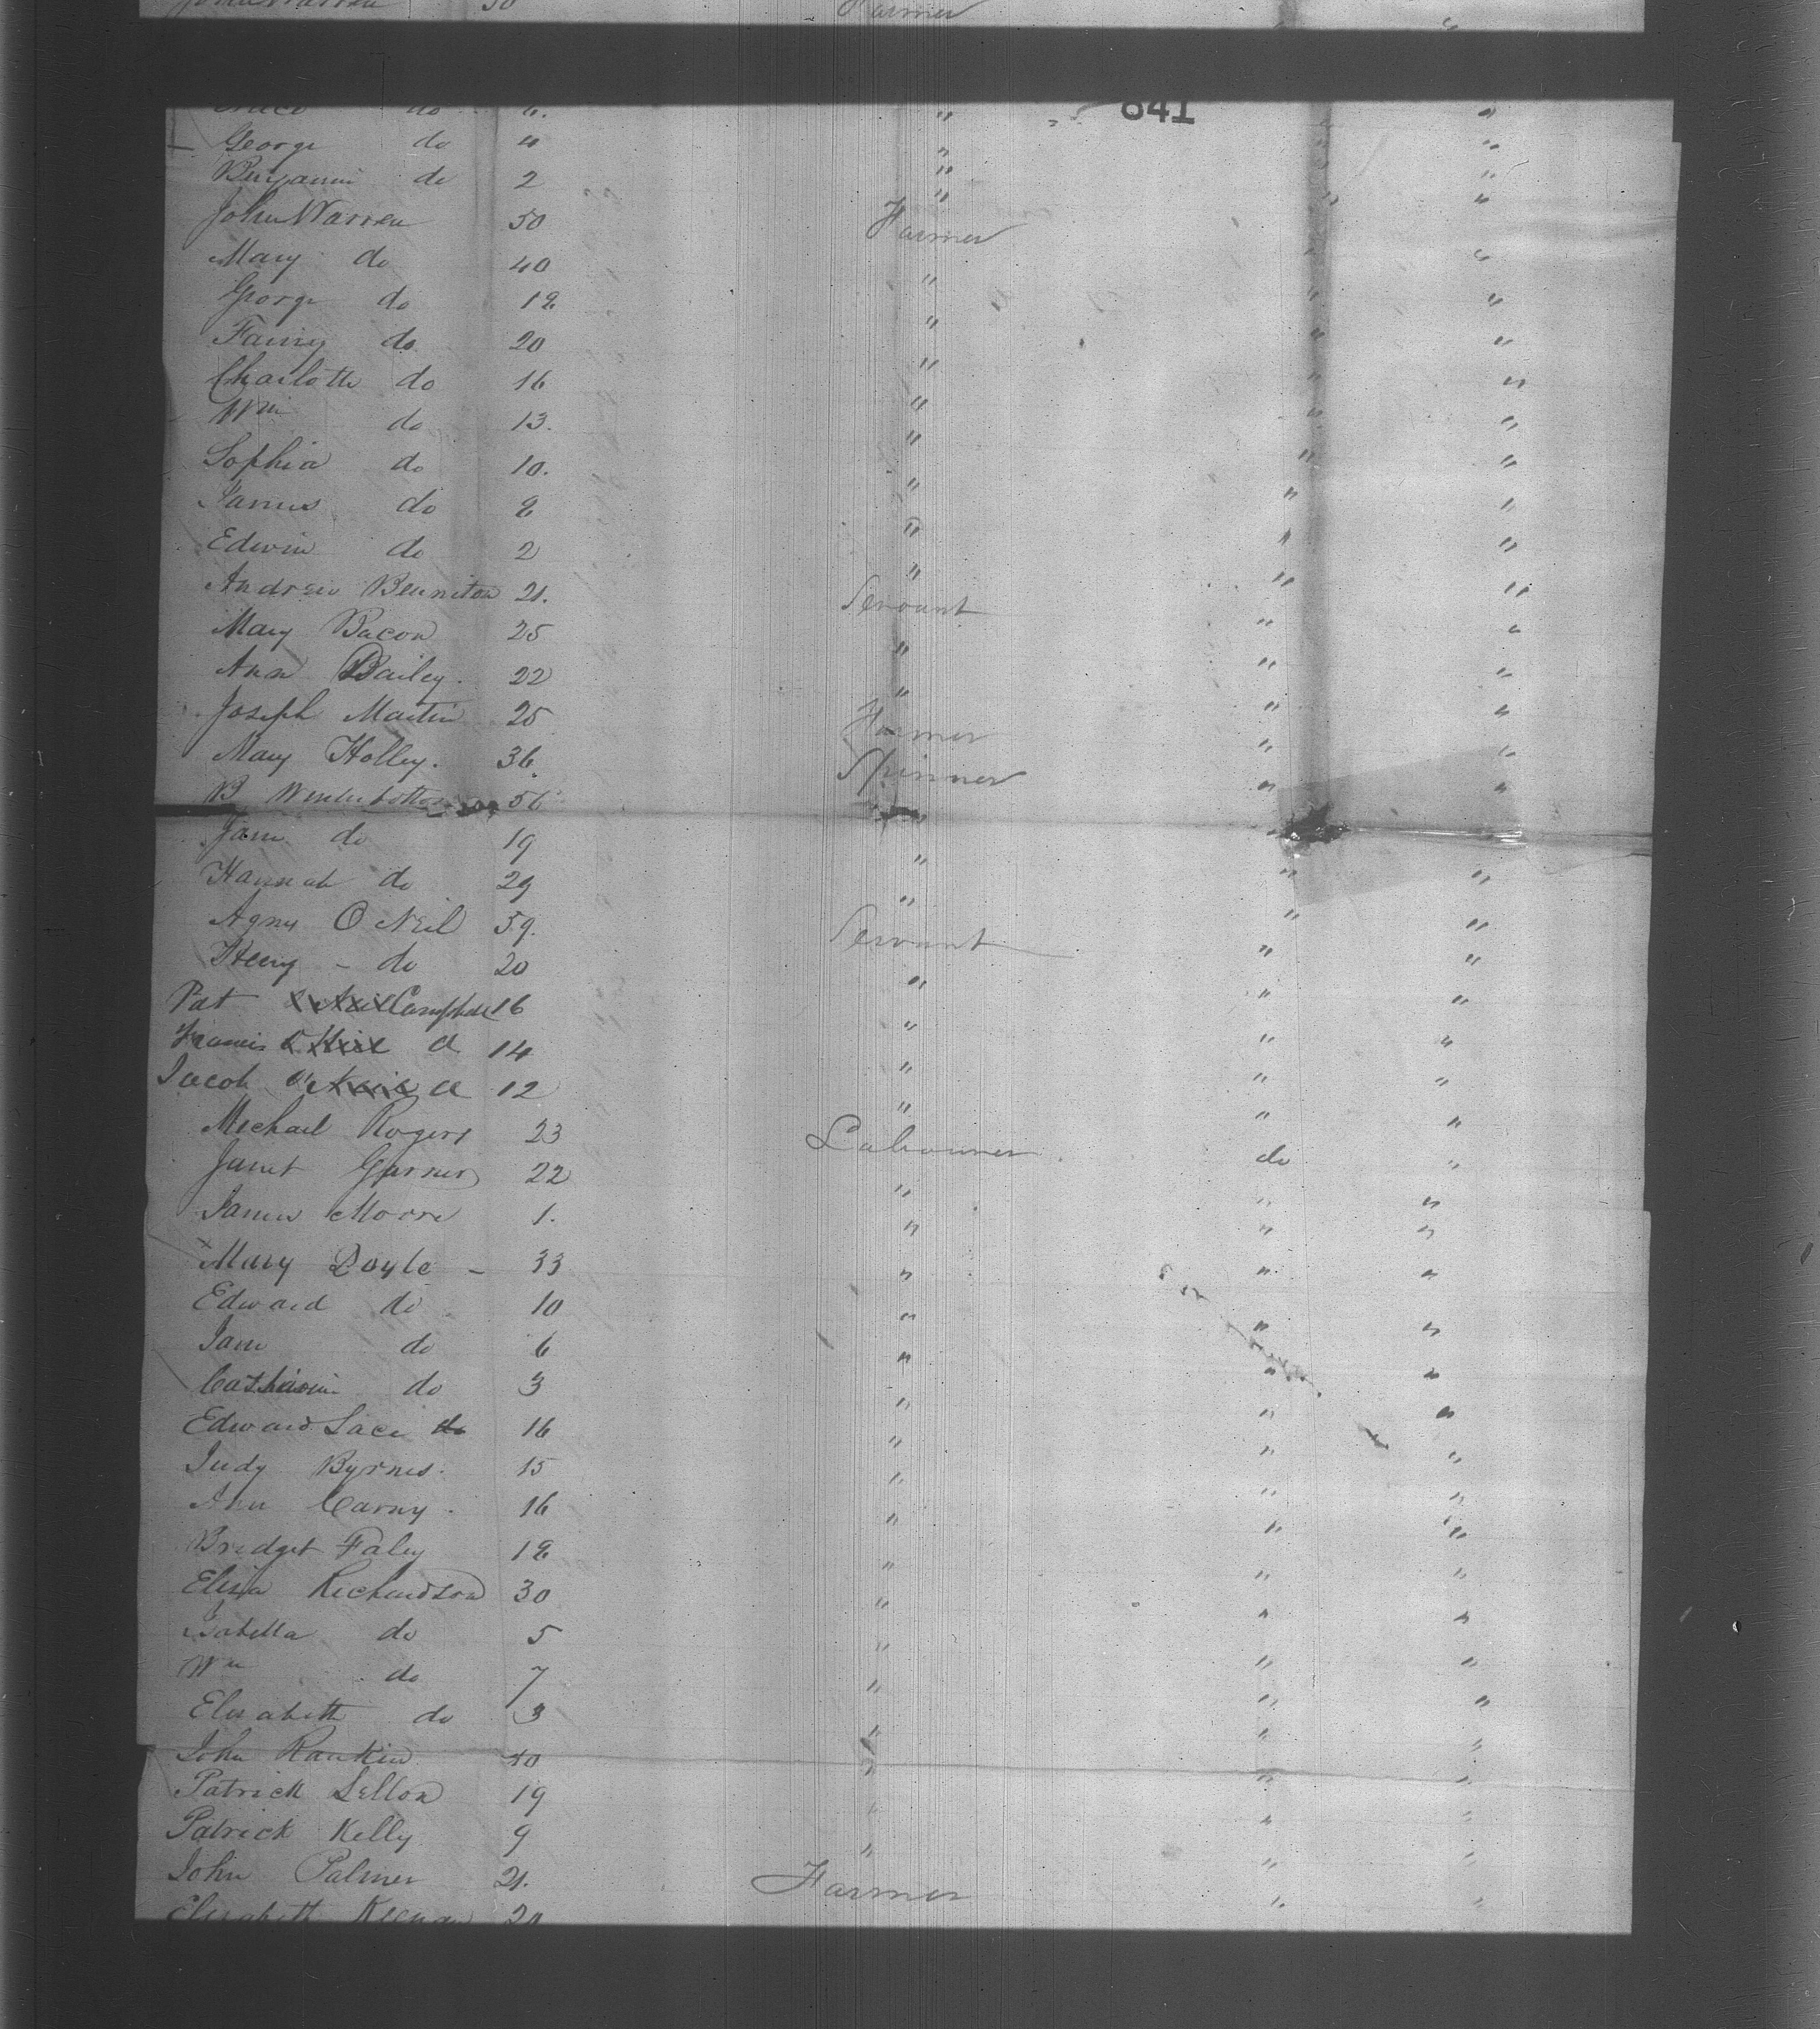 John Warren 50 Farmer "
641
Grace do 6. " "
George do 4 " "
Benjamin do 2 " "
John Warren 50 Farmer " "
Mary do 40 " " "
George do 18 " " "
Fanny do 20 " " "
Charlotte do 16 " " "
Wm do 13. " " "
Sophia do 10. " " "
James do 8 " " "
Edwin do 2 " " "
Andrew Benniton 21. Servant " "
Mary Bacon 25 " " "
Ann Bailey. 22 " " "
Joseph Martin 25 Farmer " "
Mary Holley. 36 Spinner " "
B Winterbottom 56 " " "
Jane do 19 " "
Hannah do 29 " " "
Agnes O Neil 59. Servant " "
Henry - do 20 " " "
Pat Campbell 16 " " "
Francis 14 " " "
Jacob 12 " " "
Michael Rogers 23 Labourer " "
Janet Garner 22 " do "
James Morre 1. " " "
x Mary Doyle - 33 " " "
Edward do 10 " " "
Jane do 6 " " "
Catharine do 3 " " "
Edward Lace do 16 " " "
Judy Byrnes. 15 " " "
Ann Carny. 16 " " "
Bridget Faley 18 " " "
Eliza Richardson 30 " " "
Isabella do 5 " " "
Wm do 7 " " "
Elizabeth do 3 " " "
John Rankin 40 " " "
Patrick Lellon 19 " " "
Patrick Kelly 9 " " "
John Palmer 21. Farmer " "
Elizabeth Keenan 20 " "